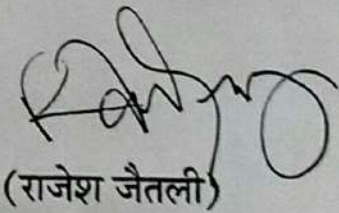 (राजेश जैतली)